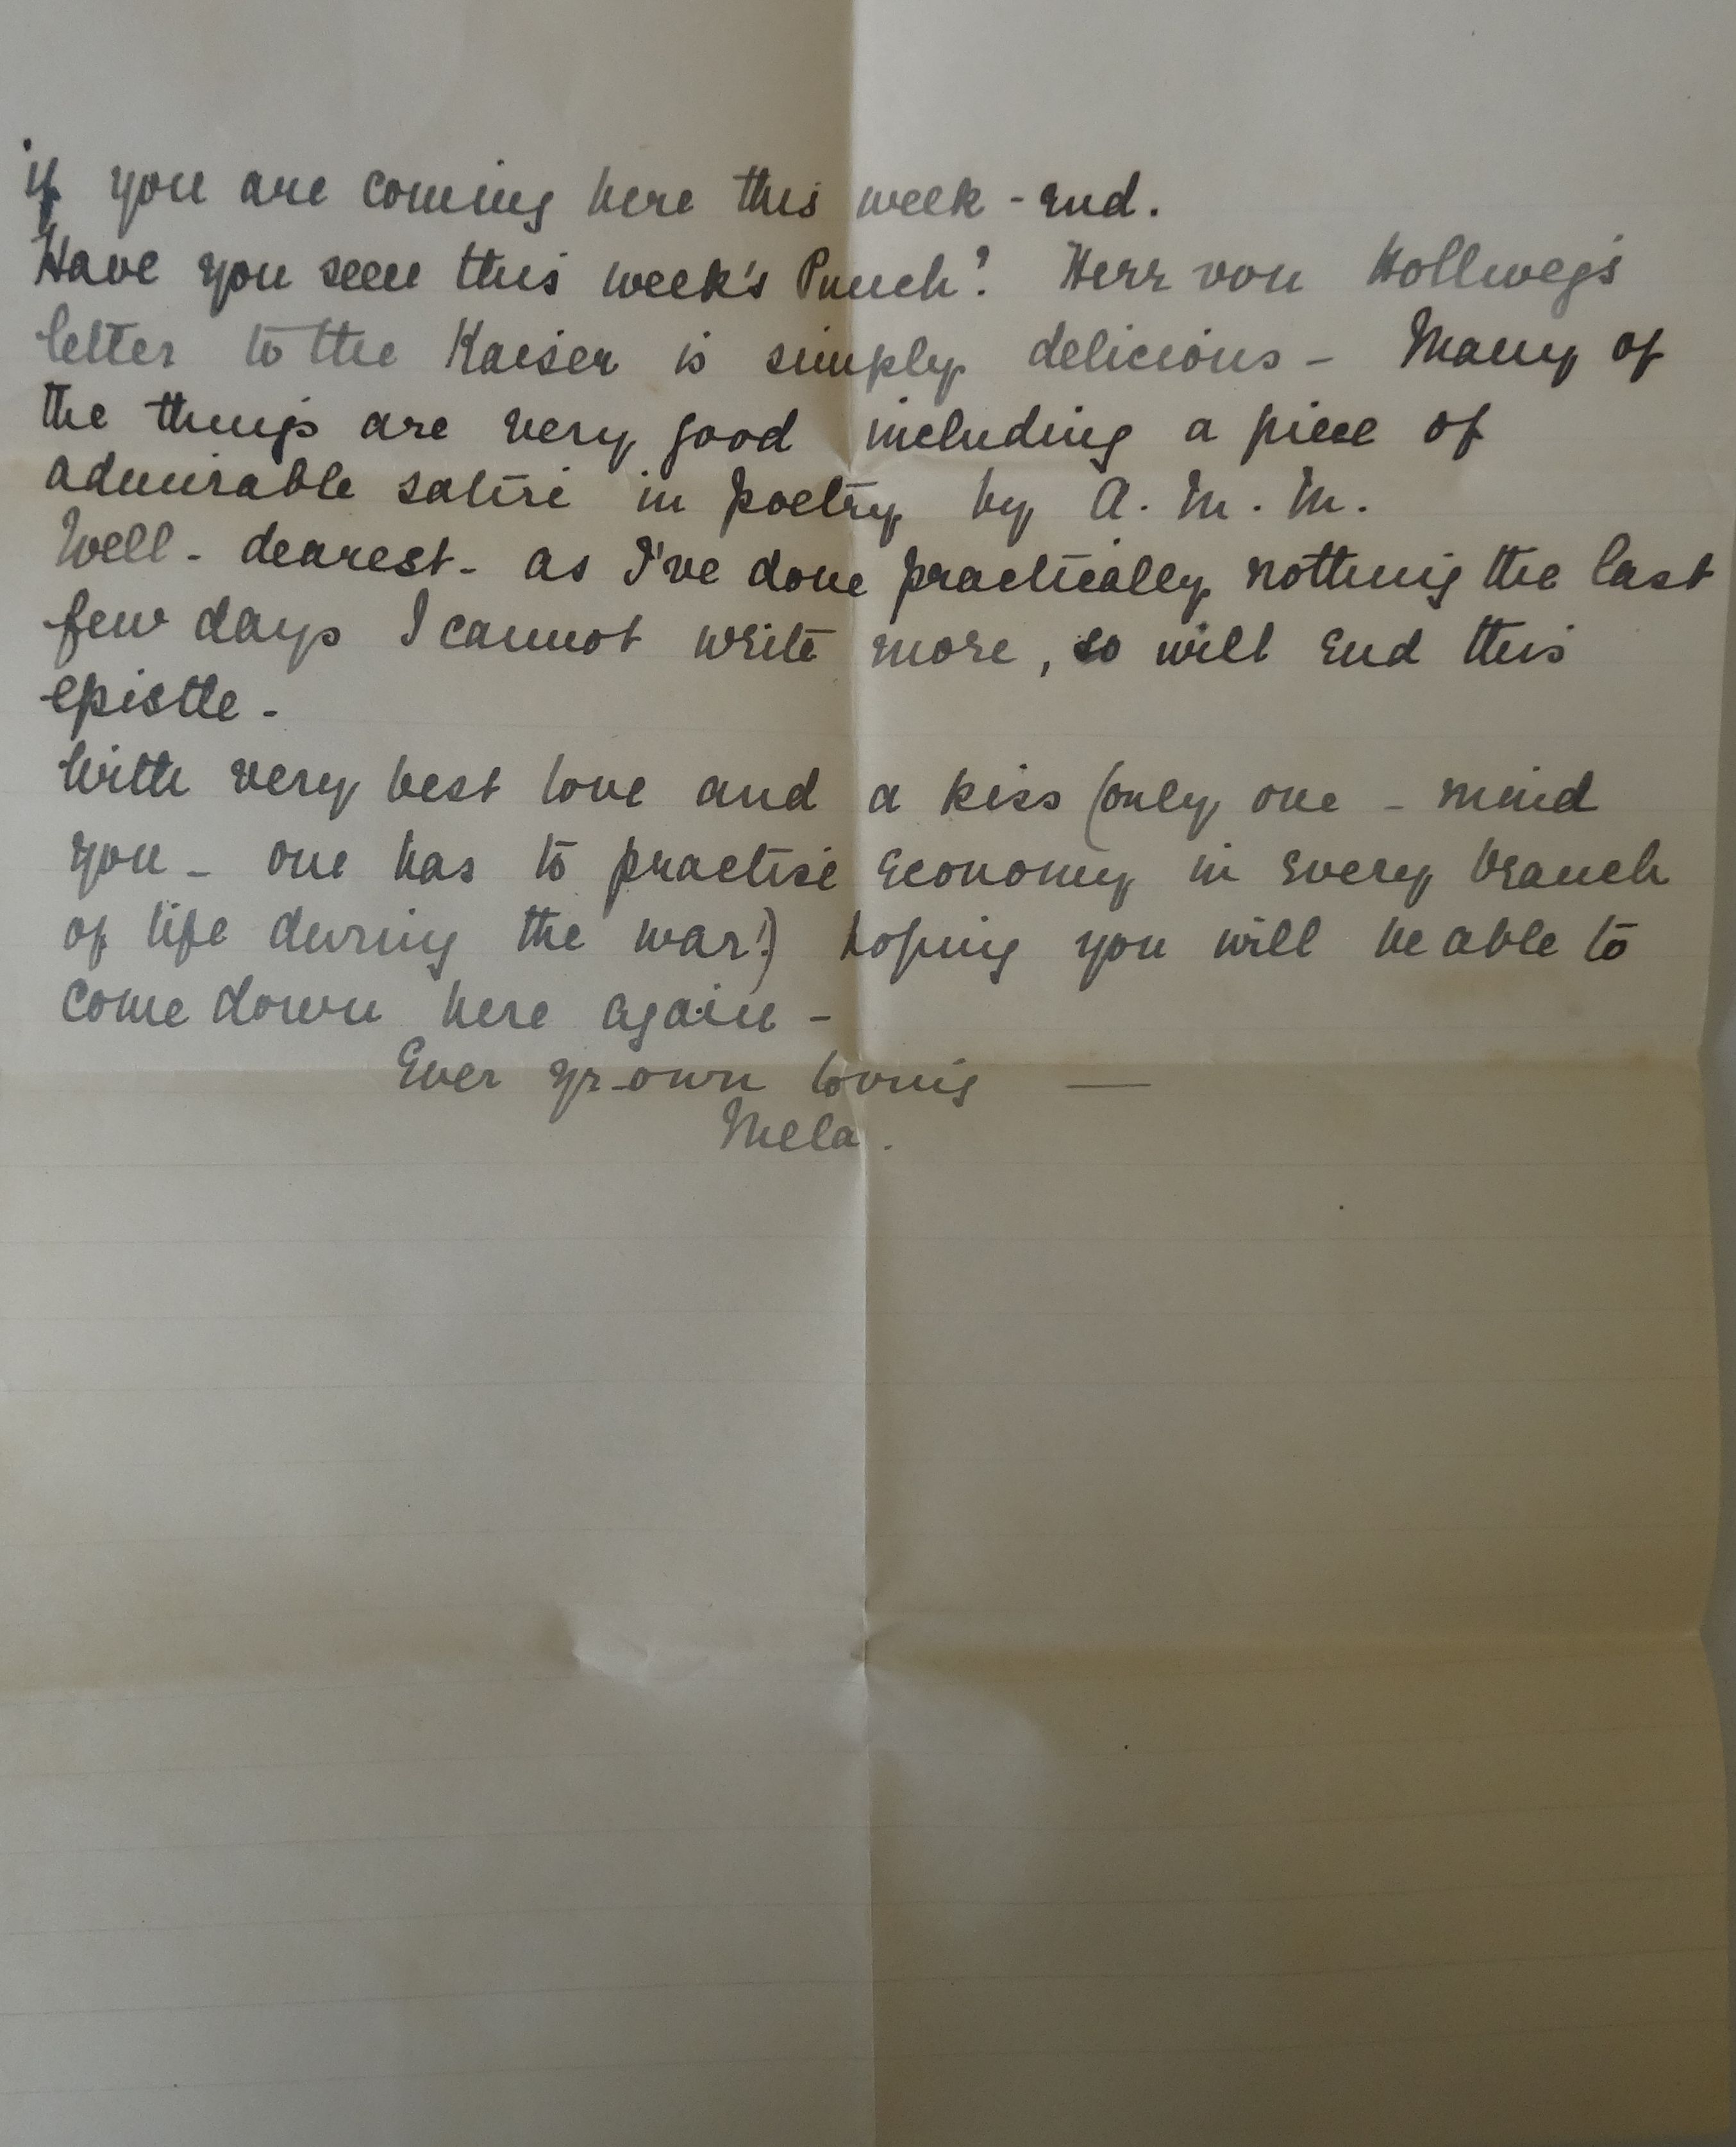 if you are coming here this week-end.
Have you seen this week's Punch? Herr von Hollweg's
letter to the Kaiser is simply delicious - Many of
the things are very good including a piece of
admirable satire in poetry by A. M. M.
Well - dearest - as I've done practically nothing the last
few days I cannot write more, so will end this
epistle -
With very best love and a kiss (only one - mind
you - one has to practise economy in every branch
of life during the war!) hoping you will be able to
come down here again -
Ever yr own loving —
Mela.